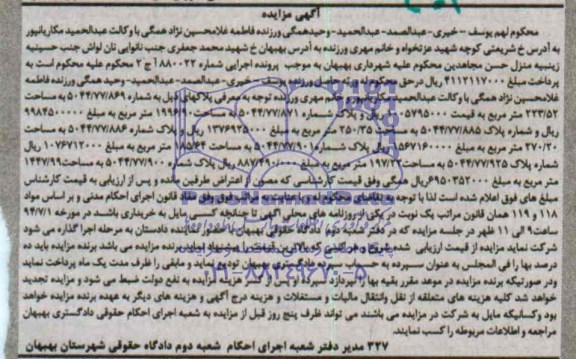 آگهی مزایده
محکوم لهم یوسف - خیری - عبدالصمد - عبدالحمید - وحید همگی ورزنده فاطمه غلامحسین نژاد همگی با وکالت عبدالحمید مکاریانپور
به آدرس خ شریعتی کوچه شهید عزتخواه و خانم مهری ورزنده به آدرس بهبهان خ شهید محمد جعفری جنب نانوایی نان لواش جنب حسینیه
زینبیه منزل حسن مجاهدین محکوم علیه شهرداری بهبهان به موجب پرونده اجرایی شماره ۱۸۸۰۰۲۲ ج ۲ محکوم علیه محکوم است به
پرداخت مبلغ ۴۱۱۲۱۱۷۰۰۰ ریال در حق محکوم له ورزنده یوسف - خیری - عبدالصمد - عبدالحمید - وحید همگی ورزنده فاطمه
غلامحسین نژاد همگی با وکالت عبدالحمید مکاریانپور و خانم مهری ورزنده توجه به معرفی پلاکهای ذیل به شماره ۵۰۴۴/۷۷/۸۶۹ به مساحت
۲۲۳/۵۲ ریال و پلاک شماره ۵۰۴۴/۷۷/۸۷۱ به مساحت متر مربع به مبلغ
ریال و شماره پلاک ۵۰۴۴/۷۷/۸۸۵ به مساحت ۲۵۰/۳۵ متر مربع به مبلغ ۱۳۷۶۹۲۵۰۰۰ ریال پلاک شماره ۵۰۴۴/۷۷/۸۸۶ به مساحت
۲۷۰/۲۰ متر مربع به مبلغ ریال و پلاک شماره ۵۰۴۴/۷۷/۹۰۱ به مساحت ۱۸۵/۶۴ متر مربع به مبلغ ۱۰۷۶۷۱۲۰۰۰ ریال
شماره پلاک ۵۰۴۴/۷۷/۹۲۵ به مساحت ۱۹۷/۲۲ متر مربع به مبلغ ریال پلاک شماره ۵۰۴۴/۷۷/۹۰۰ به مساحت ۱۴۴۷/۹۹
متر مربع به مبلغ ۶۹۵۰۳۵۲۰۰۰ ریال همگی وفق قیمت کارشناسی که مصون از اعتراض طرفین مانده و پس از ارزیابی به قیمت کارشناس
مبلغ های فوق اعلام شده است لذا با توجه به تقاضای محکوم له و با عنایت به مراتب فوق وفق مفاد قانون اجرای احکام مدنی و بر اساس مواد
۱۱۸ و ۱۱۹ همان قانون مراتب یک نوبت در یکی از روزنامه های محلی آگهی تا چنانچه کسی مایل به خریداری باشد در مورخه ۹۴/۷/۱
ساعت ۹ الی ۱۱ ظهر در جلسه مزایده که در دفتر شعبه دوم دادگاه حقوقی بهبهان با حضور نماینده دادستان به مرحله اجرا گذاره می شود
شرکت نماید مزایده از قیمت ارزیابی شده شروع و هر کسی که بالاترین قیمت را پیشنهاد نماید برنده مزایده می باشد برنده مزایده باید ده
درصد بها را فی المجلس به عنوان سپرده به حساب سپرده دادگستری بهبهان تودیع نماید و مابقی را ظرف مدت یک ماه پرداخت نماید
و در صورتیکه برنده مزایده در موعد مقرر بقیه بها را نپردازد سپرده او پس از کسر هزینه مزایده به نفع دولت ضبط می شود و مزایده تجدید
خواهد شد کلیه هزینه های متعلقه از نقل وانتقال مالیات و مستغلات و هزینه درج آگهی و هزینه های دیگر به عهده برنده مزایده خواهد
بود وکسانیکه مایل به شرکت در مزایده می باشند می تواند ظرف پنج روز قبل از مزایده به شعبه اجرای احکام حقوقی دادگستری بهبهان
مراجعه و اطلاعات مربوطه را کسب نمایند.
۳۲۷ مدیر دفتر شعبه اجرای احکام شعبه دوم دادگاه حقوقی شهرستان بهبهان
۰۲۱-۸۸۳۴۹۶۷۰-۵